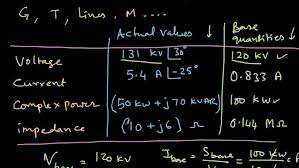 G, T, Lines, M ....
Actual values ↓ Base quantities ↓
Voltage 131 kV ∠30° 120 kV ✓
Current 5.4 A ∠-25° 0.833 A
Complex power (50 kW + j70 kVAR) 100 kW ✓
impedance (10 + j6) Ω 0.144 MΩ
= 120 kV I base = S base